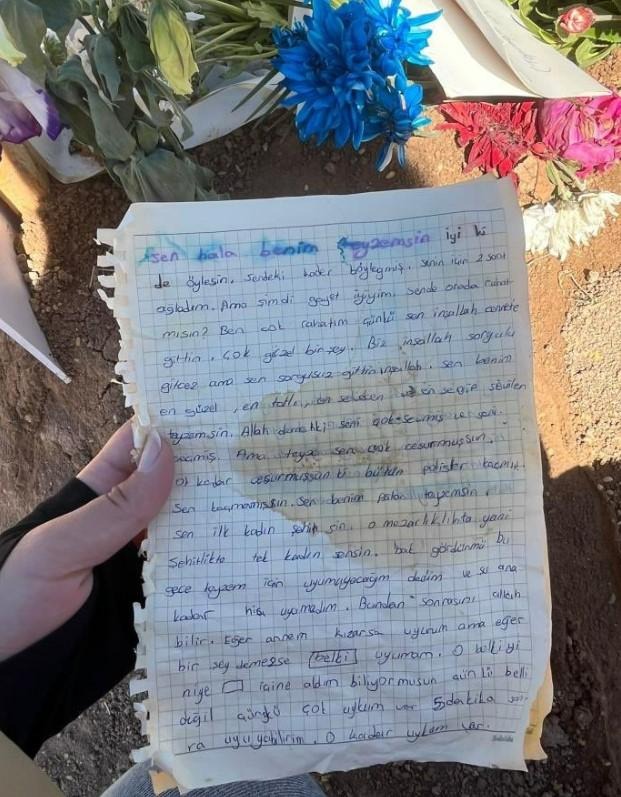 sen hala benim teyzemsin iyi ki
de öylesin. Sendeki kader böyleymiş. Senin için 2 saat
ağladım. Ama şimdi gayet iyiyim. Sende orada rahat
mısın? Ben çok rahatım çünkü sen inşallah cennete
gittin. Çok güzel bir şey. Biz inşallah sorgulu
gitcez ama sen sorgusuz gittin inşallah. Sen benim
en güzel, en tatlı, en sevilen
teyzemsin. Allah demekki seni çok sevmiş ve
seçmiş. Ama teyze sen çok cesurmuşsun.
O kadar cesurmuşsun ki bütün polisler kaçmış
Sen kaçmamışsın. Sen benim teyzemsin.
sen ilk kadın şehitsin. O mezarlıklıkta yani
Şehitlikte tek kadın sensin. bak gördünmü bu
gece teyzem için uyumuyacağım dedim ve şu ana
kadar hiç uyumadım. Bundan sonrasını allah
bilir. Eğer annem kızarsa uyurum ama eğer
bir şey demezse belki uyumam. O belkiyi
niye içine aldım biliyormusun çünkü belli
değil çünkü çok uykum var 5 dakika son-
ra uyuyabilirim. O kadar uykum var.